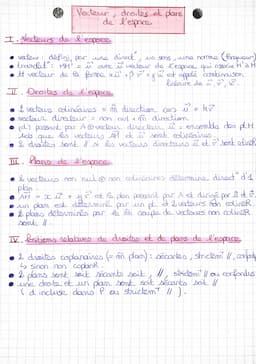 Vecteur, droites et plans
de l'espace
I. Vecteurs de l'espace
• vecteur : défini par une direct°, un sens, une norme (longueur)
• translat° : MM' = u avec u vecteur de l'espace qui associe M' à M
• vecteur de la forme xu + yv + zw est appelé combinaison
linéaire de u, v, w.
II. Droites de l'espace
• 2 vecteurs colinéaires = m direction
• vecteur directeur = non nul + m direction
• (d) passant par A et vecteur directeur u = ensemble des pts M
tels que les vecteurs AM et u sont colinéaires
• 2 droites sont // si les vecteurs directeurs u et v sont colinéR
III. Plans de l'espace
• 2 vecteurs non nul non colinéaires détermine direct° d'1
plan.
• AM = xu + yv et le plan passant par A et dirigé par u et v.
• un plan est déterminé par un pt et 2 vecteurs non colinéR.
• 2 plans déterminés par le m couple de vecteurs non colinéR
sont //.
IV. Positions relatives de droites et de plans de l'espace
• 2 droites coplanaires (= m plan) : sécantes, strictem^t //, confond
↳ sinon non coplanR
• 2 plans sont soit sécants soit //, strictem^t // ou confondus
• une droite et un plan sont soit sécants soit //
(d incluse dans P ou strictem^t //).